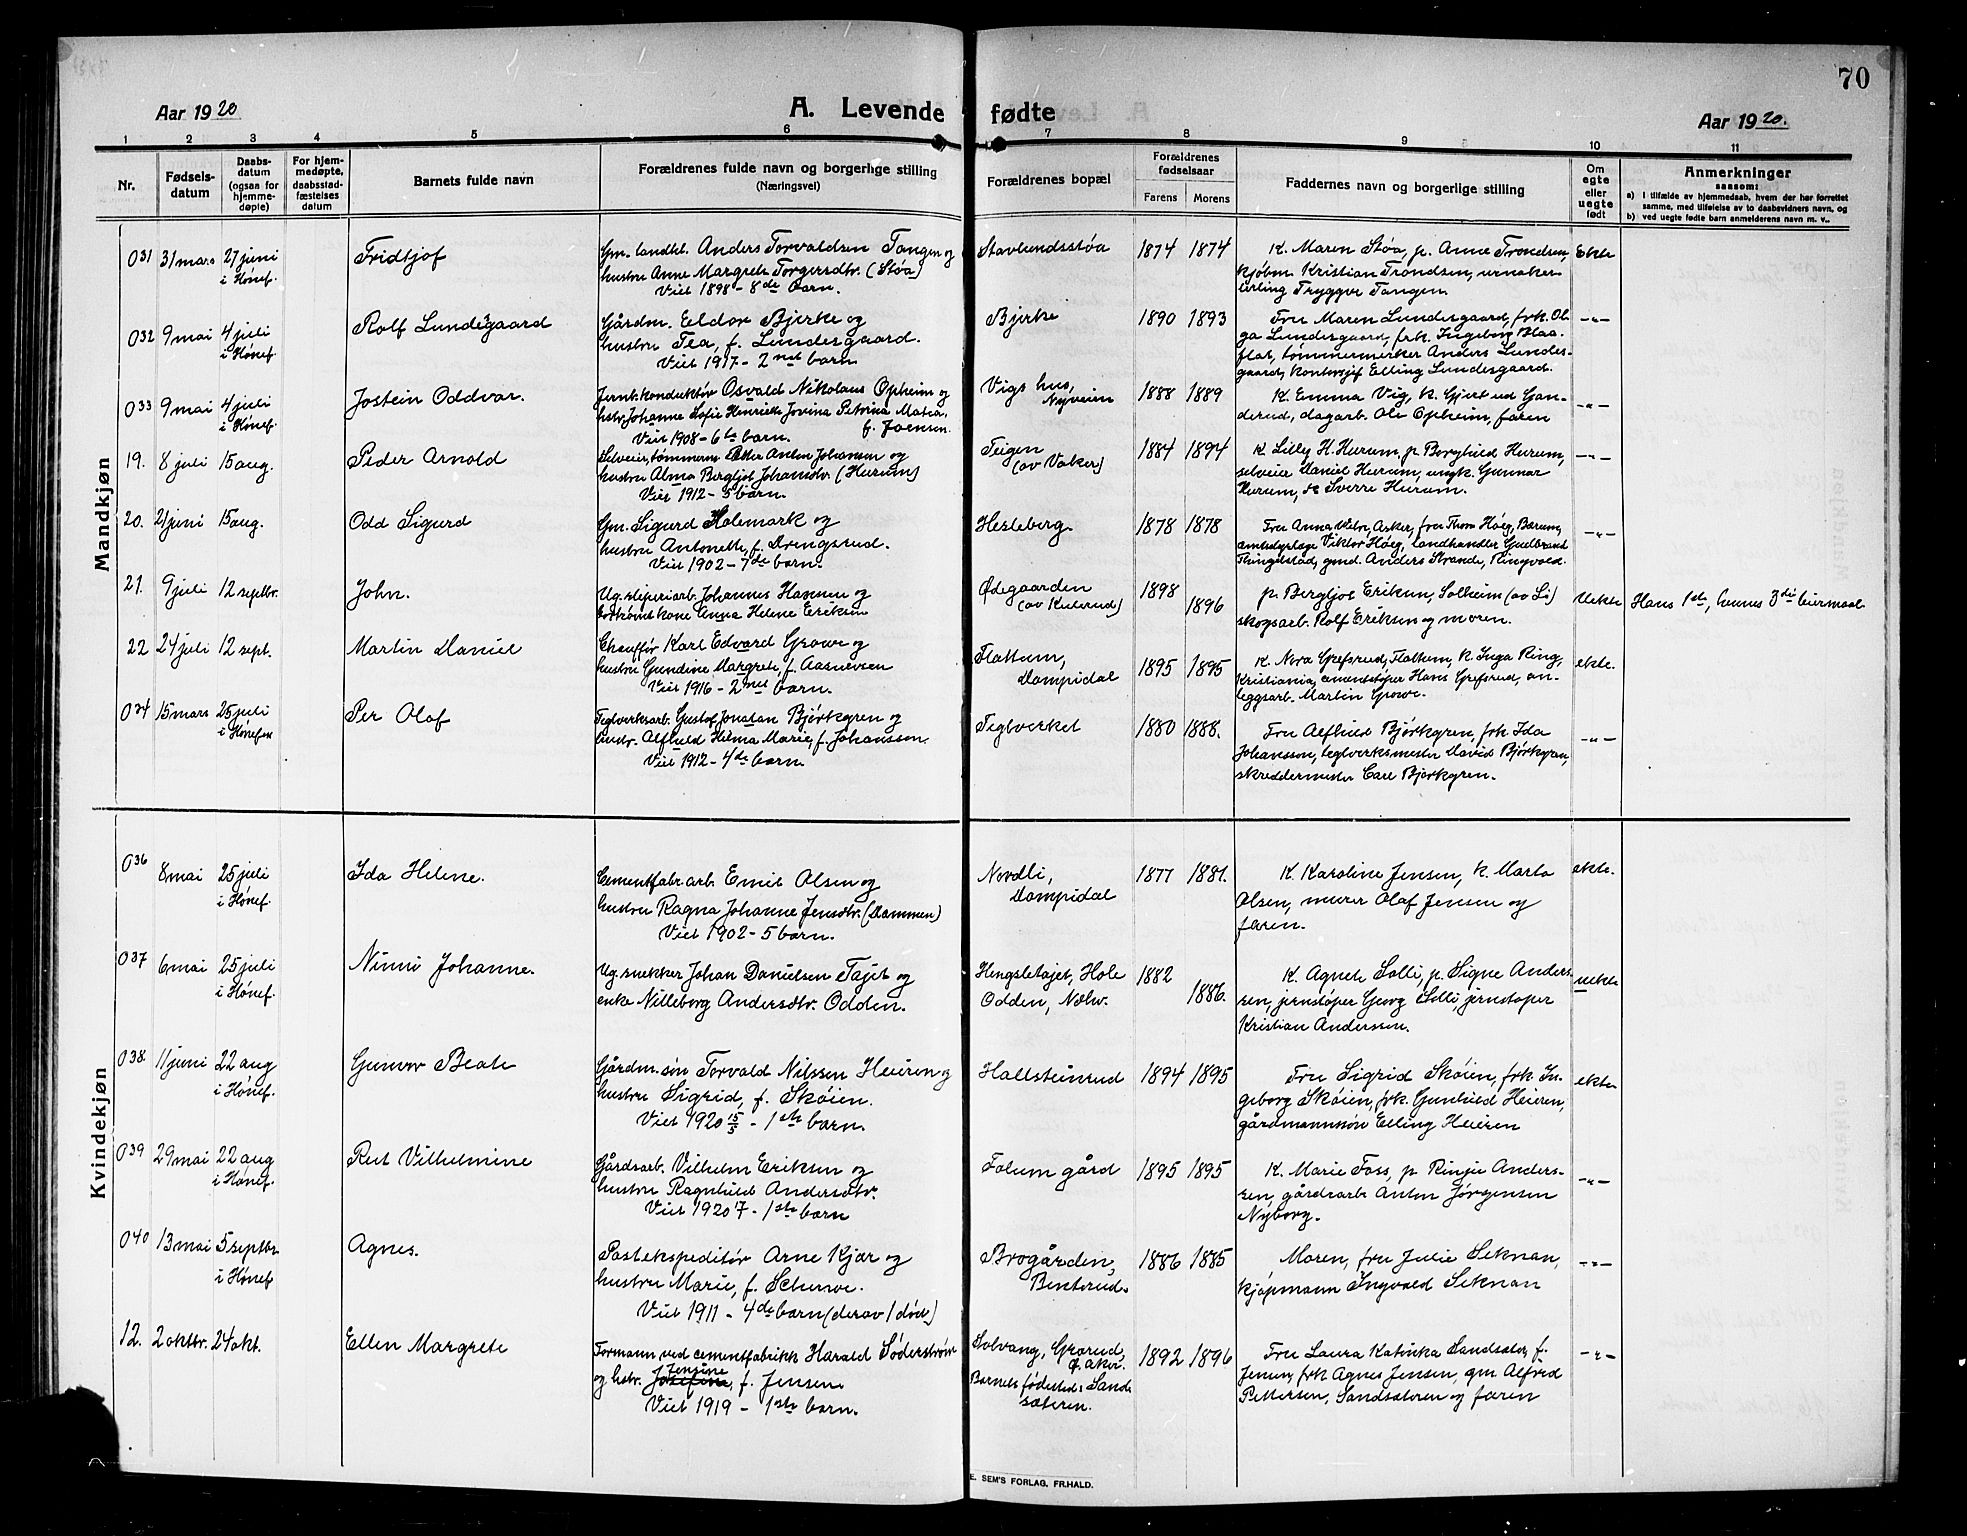 70
Aar 1920
A. Levende fødte
Aar 1920.
1 2 3 4 5 6 7 8 9 10 11
Nr.
Fødsels-
datum
Daabs-
datum
(ogsaa for
hjemme-
døpte)
For hjem-
medøpte,
daabsstad-
fæstelses
datum
Barnets fulde navn
Forældrenes fulde navn og borgerlige stilling
(Næringsvei)
Forældrenes bopæl
Forældrenes
fødselsaar
Farens Morens
Faddernes navn og borgerlige stilling
Om
egte
eller
uegte
født
Anmerkninger
saasom:
a) I tilfælde av hjemmedaab, hvem der har forrettet
samme, med tilføielse av to daabsvidners navn, og
b) ved uegte fødte barn anmelderens navn m. v.
Mandkjøn
031 31 mars 27 juni
i Hønef.
Fridtjof
Gm. landh. Anders Torvaldsen Tangen og
hustru Anne Margrete Torgersdtr. (Støa)
Viet 1898 - 8de barn.
Stavlundsstøa
1874 1874
K. Maren Støa, p. Anne Trondsen,
kjøbm. Kristian Trondsen, urmaker-
lærling Tryggve Tangen.
Ekte
032 9 mai 4 juli
i Hønef.
Rolf Lundesgaard
Gårdm. Eldor Bjerke og
hustru Tea, f. Lundesgaard.
Viet 1917 - 2net barn
Bjerke
1890 1893
Fru Maren Lundesgaard, frk. Ol-
ga Lundesgaard, frk. Ingeborg Blaa-
flat, tømmermerker Anders Lundes-
gaard, kontorsjef Elling Lundesgaard.
-"-
033 9 mai 4 juli
i Hønef.
Jostein Oddvar.
Jernb. konduktør Osvald Nikolaus Opheim og
hstr. Johanne Sofie Henriette Jovina Petrina Maria,
f. Joensen.
Viet 1908 - 6te barn.
Vigs hus,
Nyveien
1888 1889
K. Emma Vig, k. Gjertrud Gan-
derud, dagarb. Ole Opheim, faren
-"-
19. 8 juli 15 aug.
Peder Arnold
Selveier, tømmerm. Peter Anton Johansen og
hustru Alma Bergljot Johansdtr. (Hurum)
Viet 1912 - 5 barn.
Teigen
(av Vaker)
1884 1894
K. Lilly H. Hurum, p. Borghild Hurum,
selveier Daniel Hurum, ungk. Gunnar
Hurum, do Sverre Hurum.
-"-
20. 21 juni 15 aug.
Odd Sigurd
Gm. Sigurd Holemark og
hustru Antonette, f. Drengsrud.
Viet 1902 - 7de barn.
Hesleberg.
1878 1878
Fru Anna Vebr, Asker, fru Thora Høeg, Bærum,
amtsdyrlæge Viktor Høeg, landhandler Gudbrand
Thingelstad, gmd. Anders Strande, Ringvold.
-"-
21. 9 juli 12 septbr.
John.
Ug. sliperiarb. Johannes Hansen og
fraskilt kone Anna Helene Eriksen
Ødegaarden
(av Kulerud)
1898
1896
p. Bergljot Eriksen, Solheim (av Li)
skogsarb. Rolf Eriksen og moren.
Uekte
Hans 1ste, hennes 3die leiermaal
22 24 juli 12 sept.
Martin Daniel
Chauffør Karl Edvard Growe og
hustru Gundine Margrete, f. Aasneveen
Viet 1916 - 2net barn.
Flattum,
Dampsdal
1895 1895
K. Nora Grefsrud, Flattum, k. Inga Ring,
Kristiania, sementstøper Hans Grefsrud, an-
leggsarb. Martin Growe.
ekte.
034 15 mars 25 juli
i Hønefos
Per Olaf
Teglverksarb. Gustaf Jonatan Björkgren og
hustr. Alfhild Hilma Marie, f. Johansson.
Viet 1912 - 4de barn.
Teglverket
1880 1888.
Fru Alfhild Björkgren, frk Ida
Johansson, teglverksmester David Björkgren,
skreddermester Carl Björkgren.
-"-
Kvindekjøn
036 8 mai 25 juli
i Hønef.
Ida Helene.
Cementfabr. arb. Emil Olsen og
hustru Ragna Johanne Jensdtr. (Dammen)
Viet 1902 - 5 barn.
Nordli,
Dampsdal
1877 1881.
K. Karoline Jensen, k. Marta
Olsen, murer Olaf Jensen og
faren.
ekte.
037 6 mai 25 juli
i Hønef.
Ninni Johanne.
Ug. snekker Johan Danielsen Tajet og
enke Nilleborg Andersdtr. Odden.
Hengsletajet, Hole
Odden, Nolw.
1882
1886.
K. Agnete Solli, p. Signe Anders-
sen, jernstøper Georg Solli, jernstøper
Kristian Anderssen.
uekte
038. 11 juni 22 aug
i Hønef.
Gunvor Beate
Gårdm. søn Torvald Nilssen Heieren og
hustru Sigrid, f. Skøien.
Viet 1920 15/5 - 1ste barn.
Hallsteinrud
1894 1895
Fru Sigrid Skøien, frk. In-
geborg Skøien, frk. Gunhild Heieren,
gårdmannssøn Elling Heieren
ekte
039 29 mai 22 aug
i Hønef.
Rut Vilhelmine
Gårdsarb. Vilhelm Eriksen og
hustru Ragnhild Andersdtr.
Viet 1920 - 1ste barn
Folum gård
1895 1895
K. Marie Foss, p Rinje Anders-
sen, gårdsarb Anton Jørgensen
Nyborg.
-"-
040 13 mai 5 septbr.
i Hønef
Agnes.
Postekspeditør Arne Kjær og
hustru Marie, f. Scharve.
Viet 1911 - 4de barn (derav 1 død)
Brogården,
Benterud.
1886 1885
Moren, fru Julie Seknan,
kjøpmann Ingvald Seknan
-"-
12. 2 oktbr. 24 okt.
Ellen Margrete
Formann ved cementfabrikk Harald Söderström
Jensine
og hstr. Josefine, f. Jensen
Viet 1919 - 1ste barn.
Solvang, Grorud,
Ø. Aker.
Barnets fødested: Sand-
sæteren.
1892 1896
Fru Laura Katinka Sandsæter, f.
Jensen, frk Agnes Jensen, gm Alfred
Pettersen, Sandsæteren og faren
-"-
E. SEM'S FORLAG, FR.HALD.